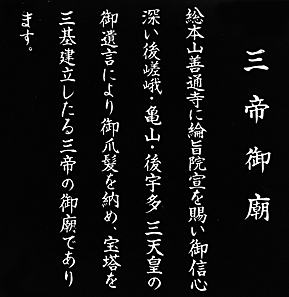 三帝御廟
総本山善通寺に綸旨院宣を賜い御信心
深い後嵯峨・亀山・後宇多 三天皇の
御遺言により御爪髪を納め、宝塔を
三基建立したる三帝の御廟であり
ます。